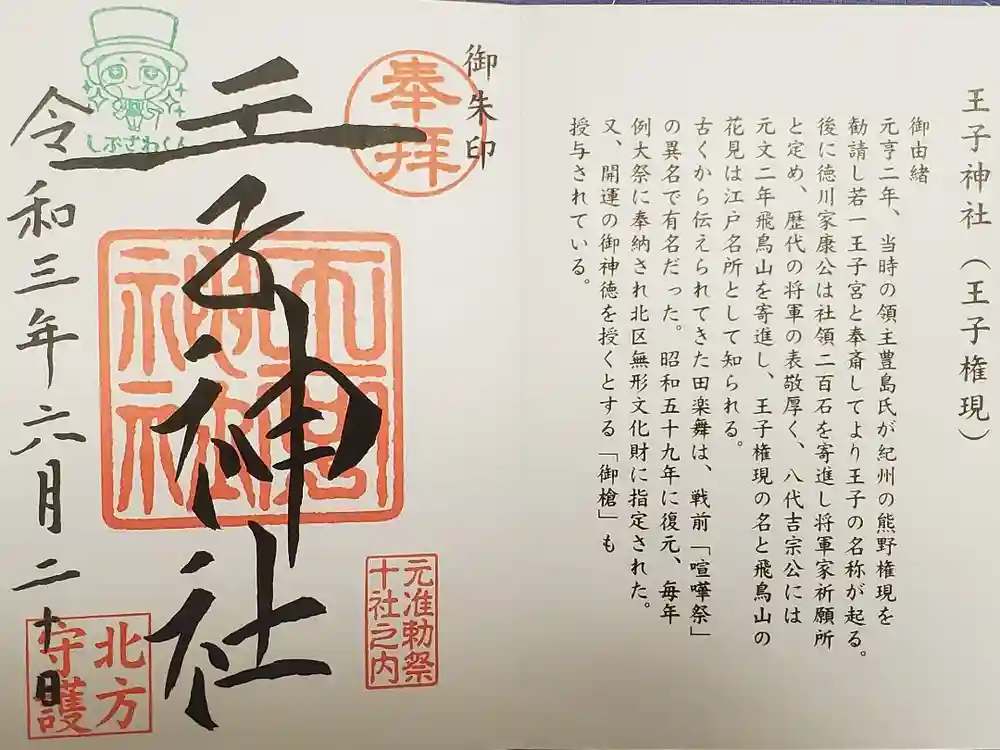 王子神社（王子権現）
御由緒
元亨二年、当時の領主豊島氏が紀州の熊野権現を
勧請し若一王子宮と奉斎してより王子の名称が起る。
後に徳川家康公は社領二百石を寄進し将軍家祈願所
と定め、歴代の将軍の表敬厚く、八代吉宗公には
元文二年飛鳥山を寄進し、王子権現の名と飛鳥山の
花見は江戸名所として知られる。
古くから伝えられてきた田楽舞は、戦前「喧嘩祭」
の異名で有名だった。昭和五十九年に復元、毎年
例大祭に奉納され北区無形文化財に指定された。
又、開運の御神徳を授くとする「御槍」も
授与されている。
御朱印
奉拝
元准勅祭
十社之内
王子神社
しぶさわくん
北方
守護
令和三年六月二十日